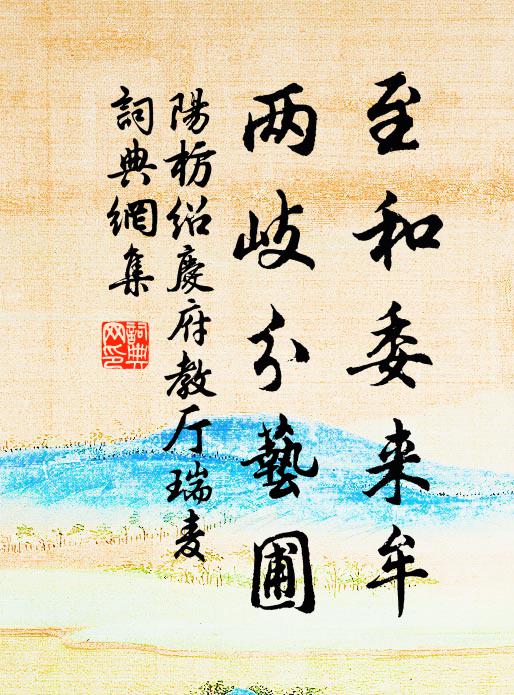 至和委来牟
两岐分藝圃
陽枋绍慶府教厅瑞麦
詞典網集
詞典网印